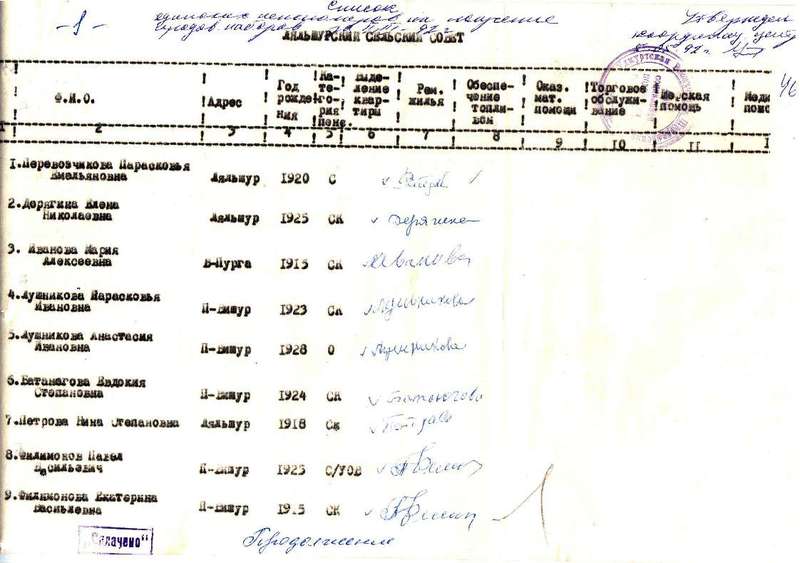 - 1 -
Список
одиноких пенсионеров на получение
Утвержден
продов. наборов
ЛЯЛЬШУРСКИЙ СЕЛЬСКИЙ СОВЕТ
46
Ф.И.О. Адрес Год рожде- ния Ка- те- го- рия пенс. Выде- ление квар- тиры Рем. жилья Обеспе- чение топли- вом Оказ. мат. помощи Торговое обслужи- вание помощь
1 2 3 4 5 6 7 8 9 10 11
1.Перевозчикова Парасковья
Емельяновна Ляльшур 1920 С
2.Дерягина Елена
Николаевна Ляльшур 1925 СК Дерягина
3. Иванова Мария
Алексеевна В-Пурга 1915 СК Иванова
4.Лушникова Парасковья
Ивановна П-Вишур 1923 СК Лушникова
5.Лушникова Анастасия
Ивановна П-Вишур 1928 О Лушникова
6.Батаногова Евдокия
Степановна П-Вишур 1924 СК Батаногова
7.Петрова Нина Степановна Ляльшур 1918 СК Петрова
8.Филимонов Павел
Васильевич П-Вишур 1925 С/УОВ
9.Филимонова Екатерина
Васильевна П-Вишур СК
"Оплачено"
Продолжение